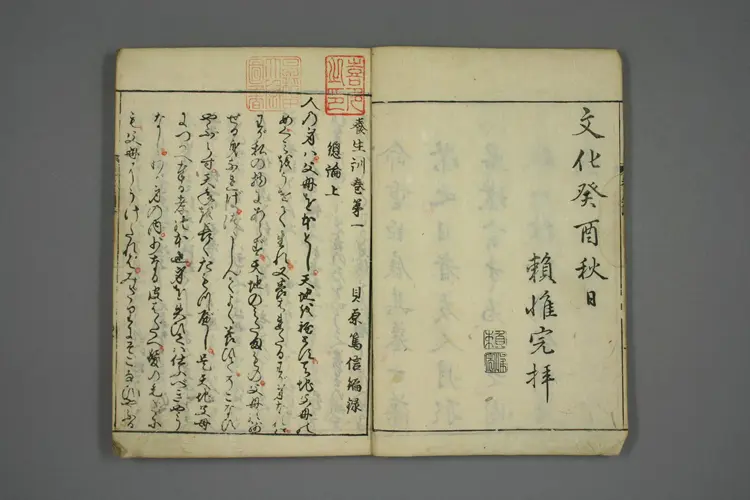 文化癸酉秋日
賴惟完拝
養生訓巻第一 貝原篤信編録
總論上
人の身は父母を本とし天地を初とす天地父母の
めぐみをうけて生れ又養はれたるわが身なれば
わが私の物にあらず天地のみたまもの父母の残
せる身なればつつしんでよく養ひてそこなひ
やぶらず天年を長くたもつべし是天地父母
につかへ奉る孝の本也身を失ひては仕ふべきやう
なしわが身の内少なる皮はだへ髪の毛だに
も父母にうけたればみだりにそこなひやぶる